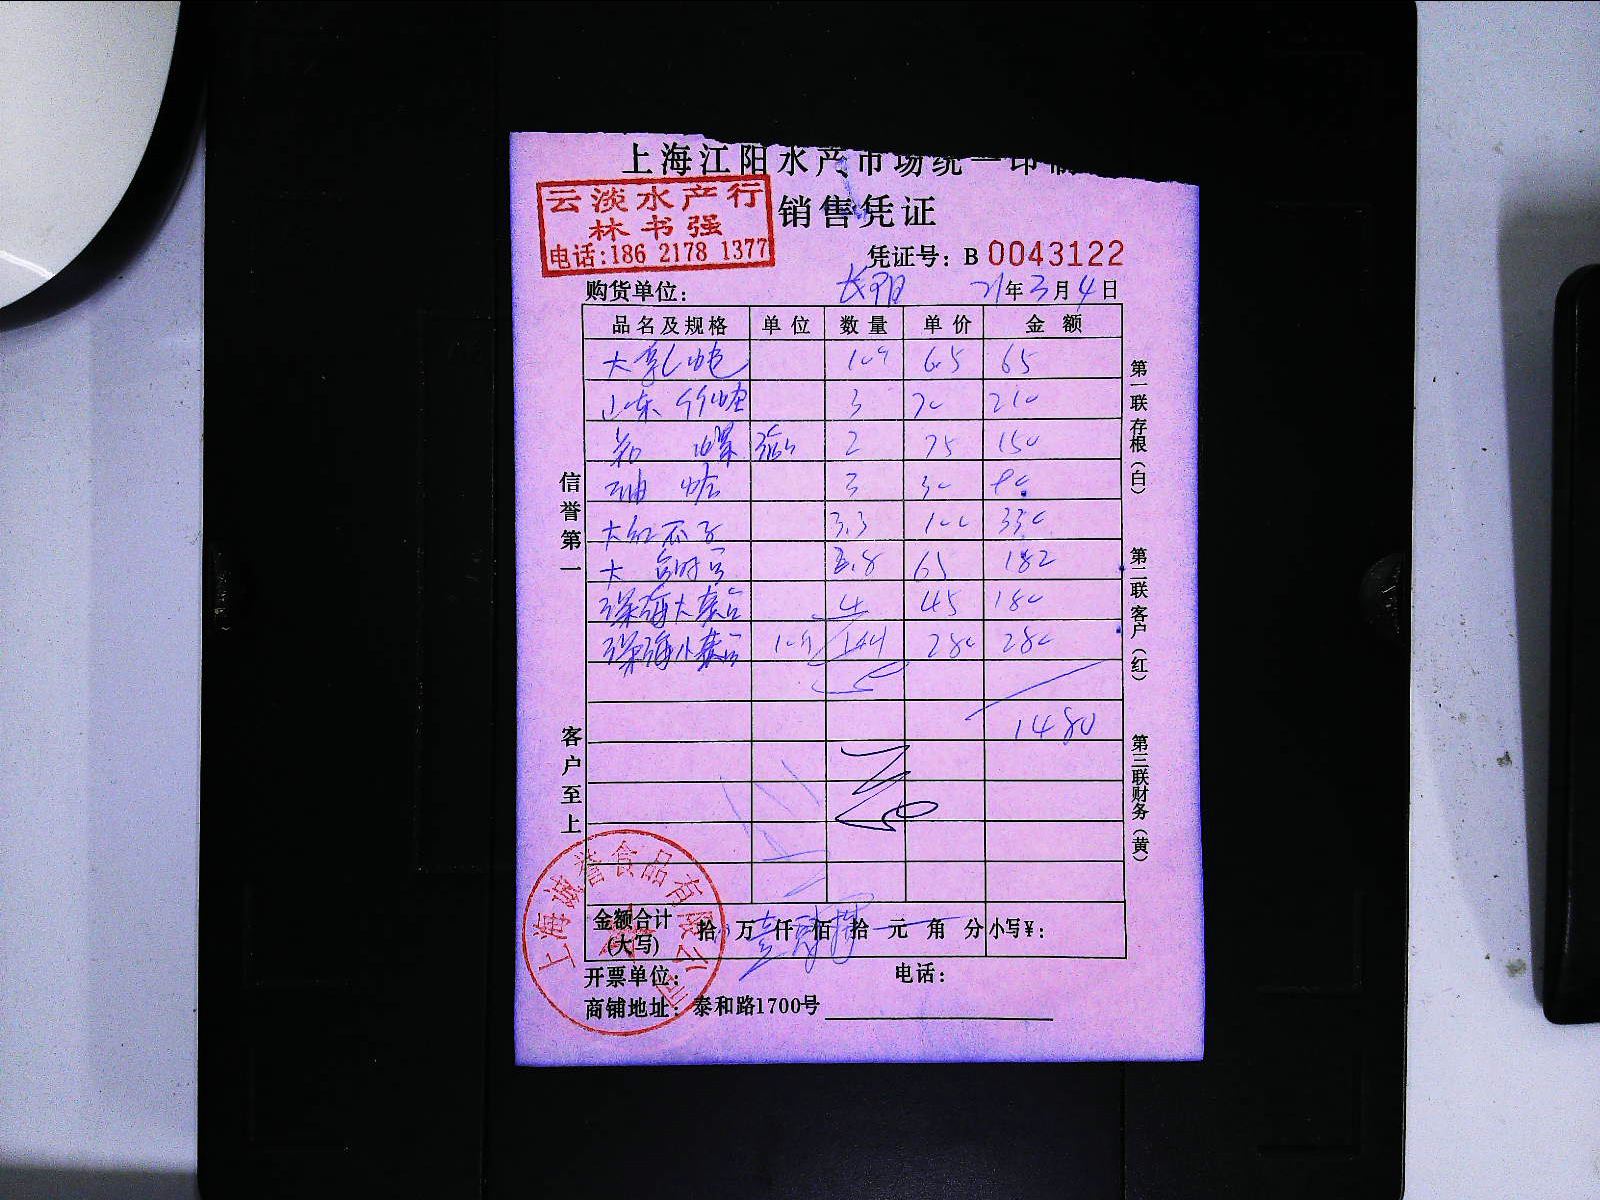 上海江阳水产市场统一印制
云淡水产行
林书强
电话:186 2178 1377
销售凭证
凭证号: B 0043122
购货单位: 长阳 21年3月4日
品名及规格 单位 数量 单价 金额
大 65 65
山东竹蛏 3 70 210
螺 2 75 150
3 30 90
大红瓜子 3.3 100 330
大 2.8 65 182
深海大 4 45 180
深海小 280 280
1480
信誉第一
客户至上
第一联存根(白)
第二联客户(红)
第三联财务(黄)
金额合计(大写) 拾 万 仟 佰 拾 元 角 分 小写¥:
开票单位: 电话:
商铺地址: 泰和路1700号
上海诚誉食品有限公司